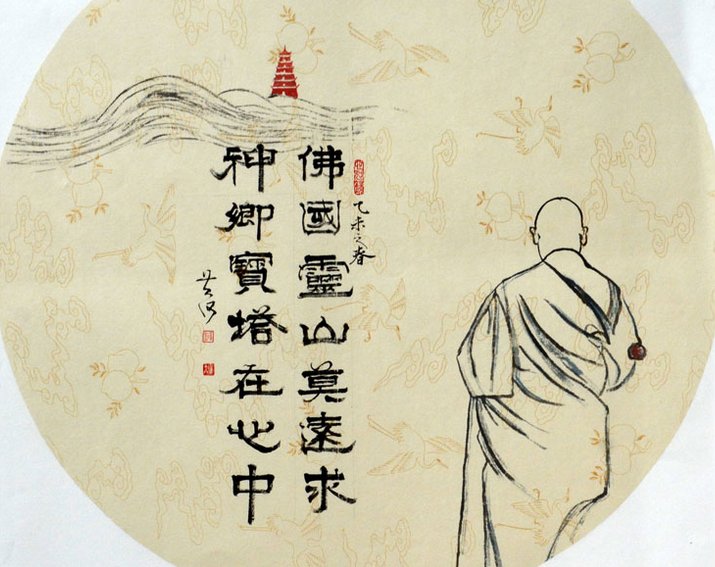 佛國靈山莫遠求
神卿寶塔在心中
乙未之春